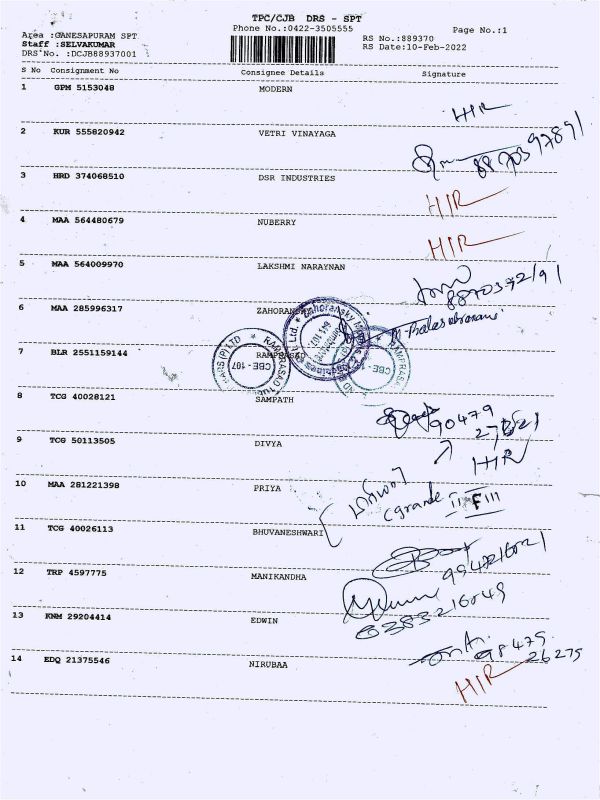 TPC/CJB DRS - SPT
Phone No.:0422-3505555
Page No.:1
Area :GANESAPURAM SPT
Staff :SELVAKUMAR
DRS No. :DCJB88937001
RS No.:889370
RS Date:10-Feb-2022
S No Consignment No Consignee Details Signature
1 GPM 5153048 MODERN
HIR
2 KUR 555820942 VETRI VINAYAGA
88703 97891
3 HRD 374068510 DSR INDUSTRIES
HIR
4 MAA 564480679 NUBERRY
HIR
5 MAA 564009970 LAKSHMI NARAYNAN
6 MAA 285996317
7 BLR 2551159144 RAMPRASAD
CBE - 107
8 TCG 40028121 SAMPATH
90479
9 TCG 50113505 DIVYA
HIR
10 MAA 281221398 PRIYA
11 TCG 40026113 BHUVANESHWARI
12 TRP 4597775 MANIKANDHA
13 KNM 29204414 EDWIN
6383216049
14 EDQ 21375546 NIRUBAA
98475
26275
HIR